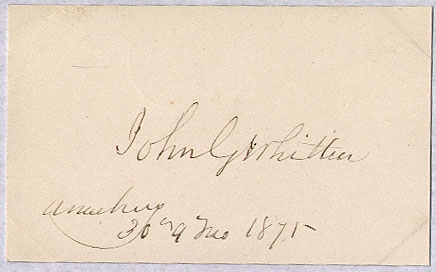 John G Whittier
Amesbury
30th 9 Mo 1875